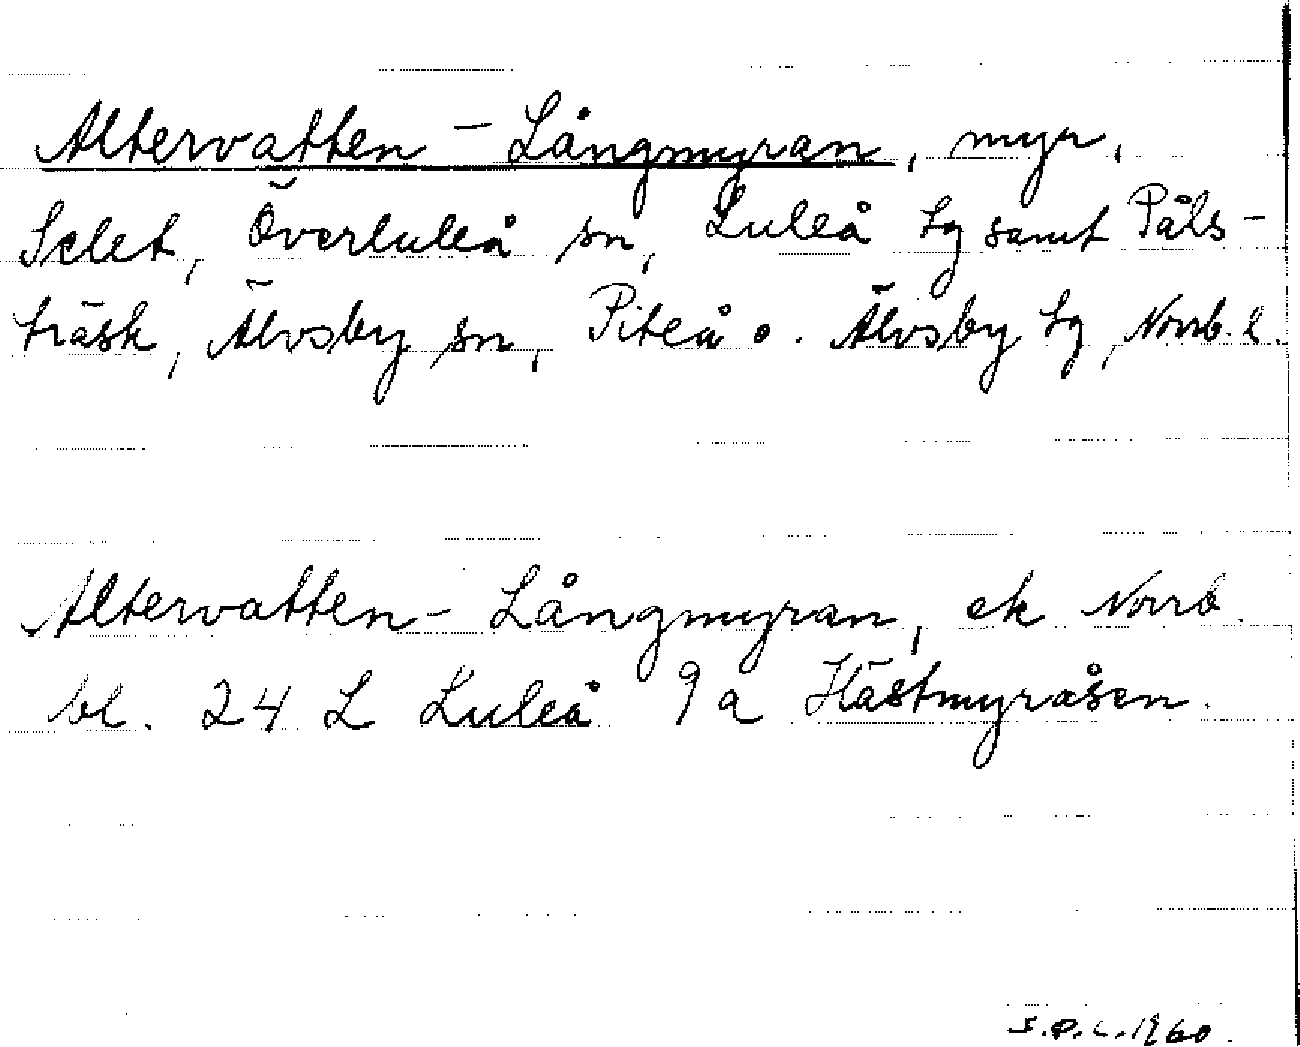 Altervatten - Långmyran, myr,
Selet, Överluleå sn, Luleå tg samt Påls-
träsk, Älvsby sn, Piteå o. Älvsby tg, Norrb. l.
Altervatten - Långmyran, ek Norrb.
bl. 24 L Luleå 9 a Hästmyråsen.
1960.